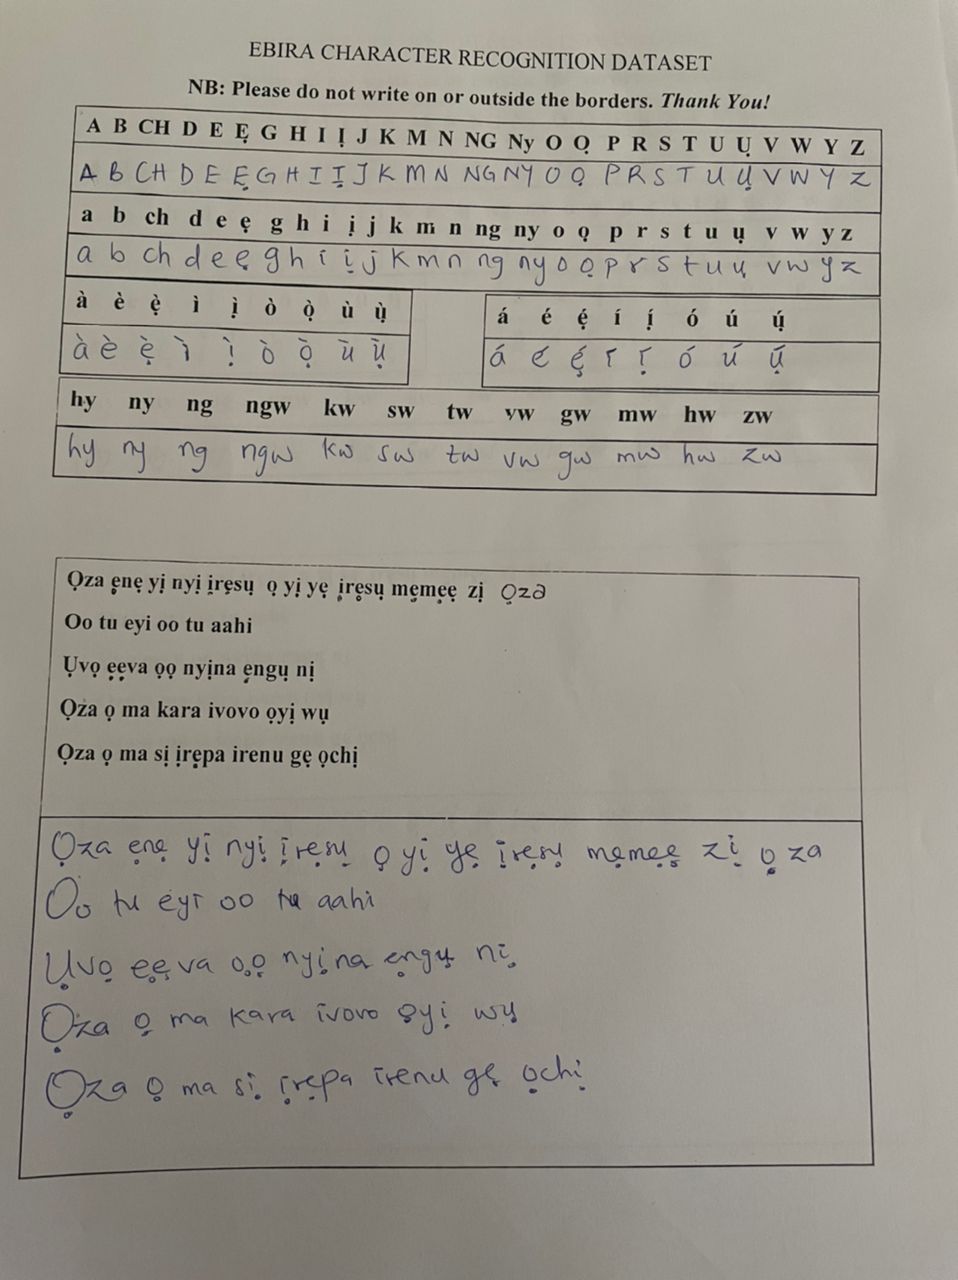 EBIRA CHARACTER RECOGNITION DATASET
NB: Please do not write on or outside the borders. Thank You!
A B CH D E Ẹ G H I Ị J K M N NG Ny O Ọ P R S T U Ụ V W Y Z
A B CH D E Ẹ G H I Ị J K M N NG NY O Ọ P R S T U Ụ V W Y Z
a b ch d e ẹ g h i ị j k m n ng ny o ọ p r s t u ụ v w y z
a b ch d e ẹ g h i ị j k m n ng ny o ọ p r s t u ụ v w y z
à è ẹ̀ ì ị̀ ò ọ̀ ù ụ̀
à è ẹ̀ ì ị̀ ò ọ̀ ù ụ̀
á é ẹ́ í ị́ ó ú ụ́
á é ẹ́ í ị́ ó ú ụ́
hy ny ng ngw kw sw tw vw gw mw hw zw
hy ny ng ngw kw sw tw vw gw mw hw zw
Ọza ẹnẹ yị nyị ịrẹsụ ọ yị yẹ ịrẹsụ mẹmẹẹ zị ọza
Oo tu eyi oo tu aahi
Ụvọ ẹẹva ọọ nyịna ẹngụ nị
Ọza ọ ma kara ivovo ọyị wụ
Ọza ọ ma sị ịrẹpa irenu gẹ ọchị
Ọza ẹnẹ yị nyị ịrẹsụ ọ yị yẹ ịrẹsụ mẹmẹẹ zị ọ za
Oo tu eyi oo tu aahi
Ụvọ ẹẹ va ọọ nyịna ẹngụ nị
Ọza ọ ma kara ivovo ọyị wụ
Ọza ọ ma sị ịrẹpa irenu gẹ ọchị